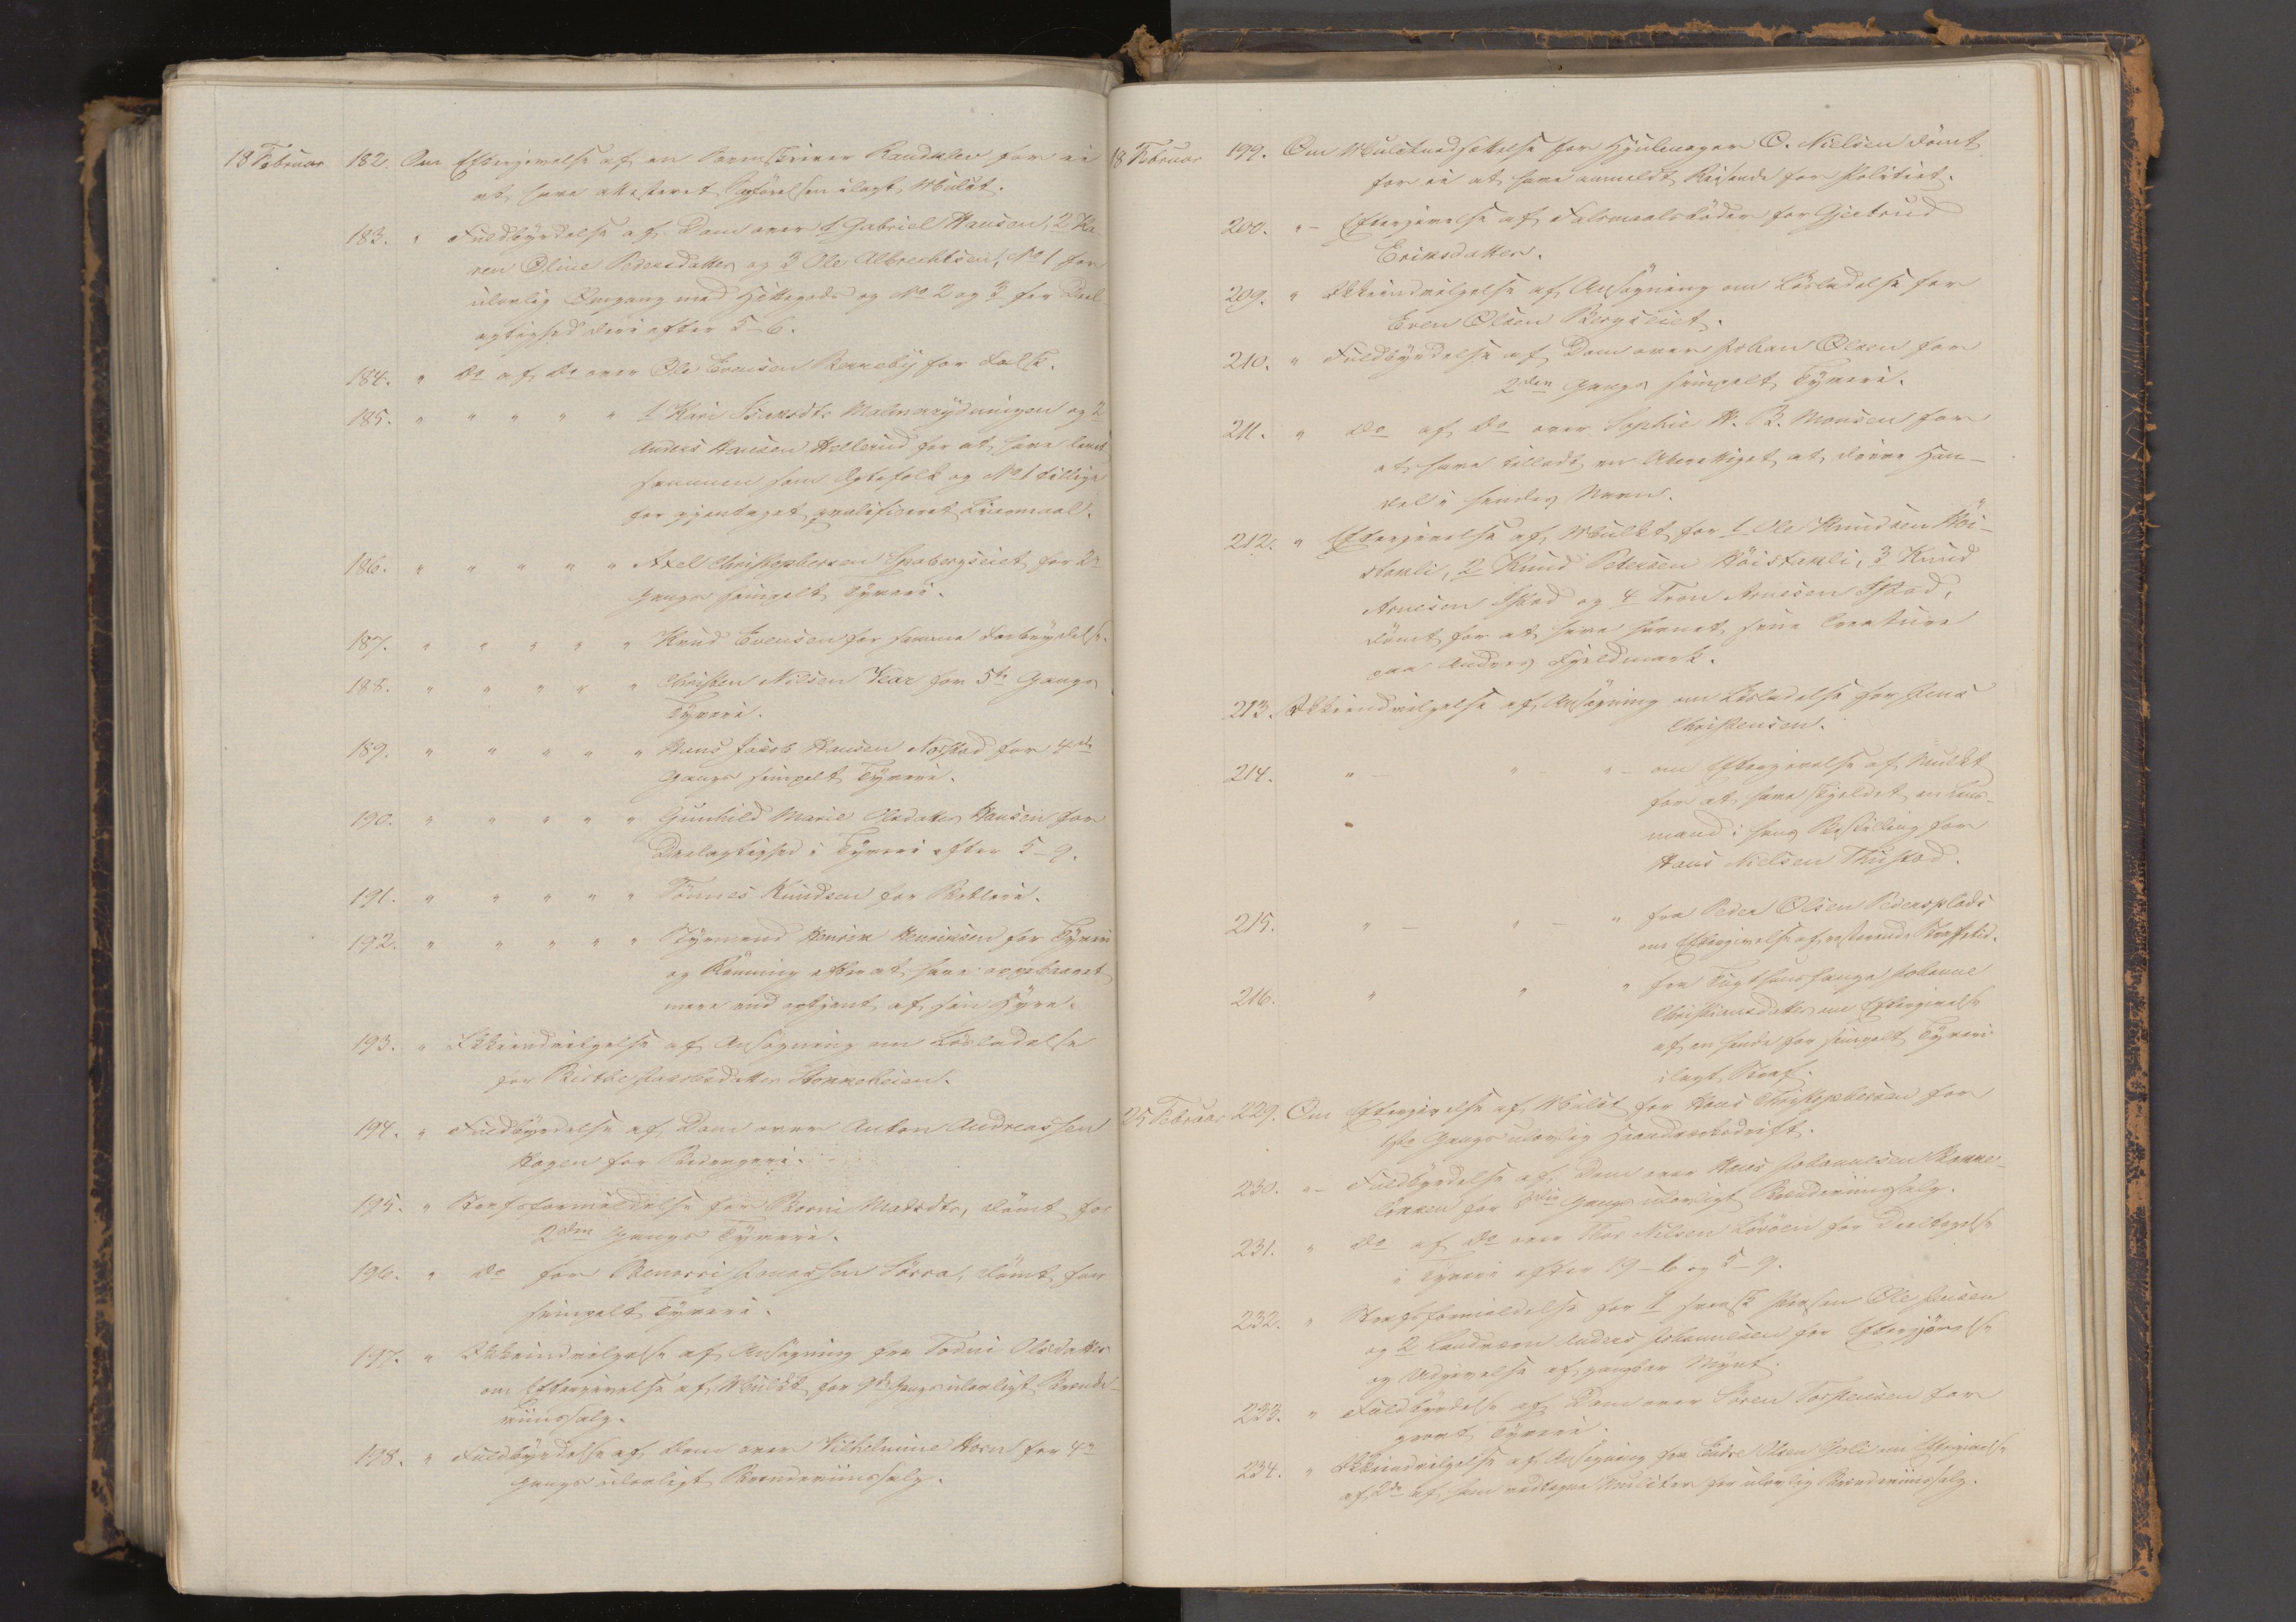 18 Februar 182. Om Eftergivelse af en Sorenskriver Randulew for ei
at have attesteret Opførelsen ilagt Mulct.
183. " Fuldbyrdelse af Dom over 1 Gabriel Hansen, 2 Ka-
ren Oline Pedersdatter og 3 Ole Albrechtsen, No 1 for
ulovlig Omgang med Hittegods og No 2 og 3 for Deel-
agtighed deri efter 5-6.
184. " Do af Do over Ole Evensen Berreby for Falsk.
185. " " " " " 1 Kari Isaksdtr Malmrydningen og 2
Anders Hansen Hollerud for at have levet
sammen som Ægtefolk og No 1 tillige
for gjentaget qvalificeret Leiermaal.
186. " " " " " Axel Christophersen Spabergseiet for 2n
Gangs simpelt Tyveri.
187. " " " " " Knud Evensen for samme Forbrydelse.
188. " " " " " Christen Nilsen Vear for 5te Gangs
Tyveri.
189. " " " " " Hans Jacob Hansen Norstad for 4de
Gangs simpelt Tyveri.
190. " " " " " Gunhild Marie Olsdatter Hansen for
Deelagtighed i Tyveri efter 5-9.
191. " " " " " Tönnes Knudsen for Betleri.
192. " " " " " Styrmand Henrik Henriksen for Tyveri
og Rømning efter at have oppebaaret
mere end optjent af sin Hyre.
193. " Ikkeindvilgelse af Ansøgning om Løsladelse
for Birthe Jacobsdatter Stokkeheien.
194. " Fuldbyrdelse af Dom over Anton Andreassen
Hagen for Bedrageri.
195. " Strafsformildelse for Borni Matsdtr, dömt for
2den Gangs Tyveri.
196. " do for Benoni Jonassen Sörra, dömt for
simpelt Tyveri.
197. " Ikkeindvilgelse af Ansøgning fra Todni Olsdatter
om Eftergivelse af Mulkt for 9de Gangs ulovligt Brænde-
viinssalg.
198. " Fuldbyrdelse af Dom over Vilhelmine Horn for 4de
Gangs ulovligt Brændeviinssalg.
18 Februar 199. Om Mulctnedsættelse for Hjulmager O. Nielsen dömt
for ei at have anmeldt Reisende for Politiet.
200. " - Eftergivelse af Faldsmaalsböder for Gjertrud
Eriksdatter.
209. " Ikkeindvilgelse af Ansøgning om Løsladelse for
Even Olsen Bergseiet.
210. " Fuldbyrdelse af Dom over Johan Olsen for
2den Gangs simpelt Tyveri.
211. " do af do over Sophie H. B. Monsen for
at have tilladt en Uberettiget at drive Han-
del i hendes Navn.
212. " Eftergivelse af Mulkt for 1 Ole Knudsen Höi-
stakli, 2 Knud Petersen Höistakli, 3 Knud
Arnesen Istad og 4 Tron Arnesen Istad,
dömt for at have havnet sine Creature
paa Andres Fjeldmark.
213. Ikkeindvilgelse af Ansøgning om Løsladelse for Jens
Christensen.
214. " - " - " - om Eftergivelse af Mulkt
for at have skjeldet en Lens-
mand i hans Bestilling for
Hans Nielsen Thustad.
215. " - " - " fra Peder Olsen Pedersplads
om Eftergivelse af resterende Straffetid.
216. " " " fra Tugthusfange Johanne
Christiansdatter om Eftergivelse
af en hende for simpelt Tyveri
ilagt Straf.
25 Februar 229. Om Eftergivelse af Mulct for Hans Christophersen for
1ste Gangs ulovlig Haandværksdrift.
230. " - Fuldbyrdelse af Dom over Hans Johannesen Bakke-
lökken for 3die Gangs ulovligt Brændeviinssalg.
231. " do af do over Thor Nilsen Loröen for Deeltagelse
i Tyveri efter 19-6 og 5-9.
232. " Strafsformildelse for 1 svensk Person Ole Jensen
og 2 Landværn Anders Johannesen for Eftergjørelse
og Udgivelse af gangbar Mynt.
233. " Fuldbyrdelse af Dom over Sören Torstensen for
grovt Tyveri.
234. " Ikkeindvilgelse af Ansøgning fra Endre Olsen Gjeli om Eftergivelse
af 2de af ham vedtagne Mulcter for ulovlig Brændeviinssalg.